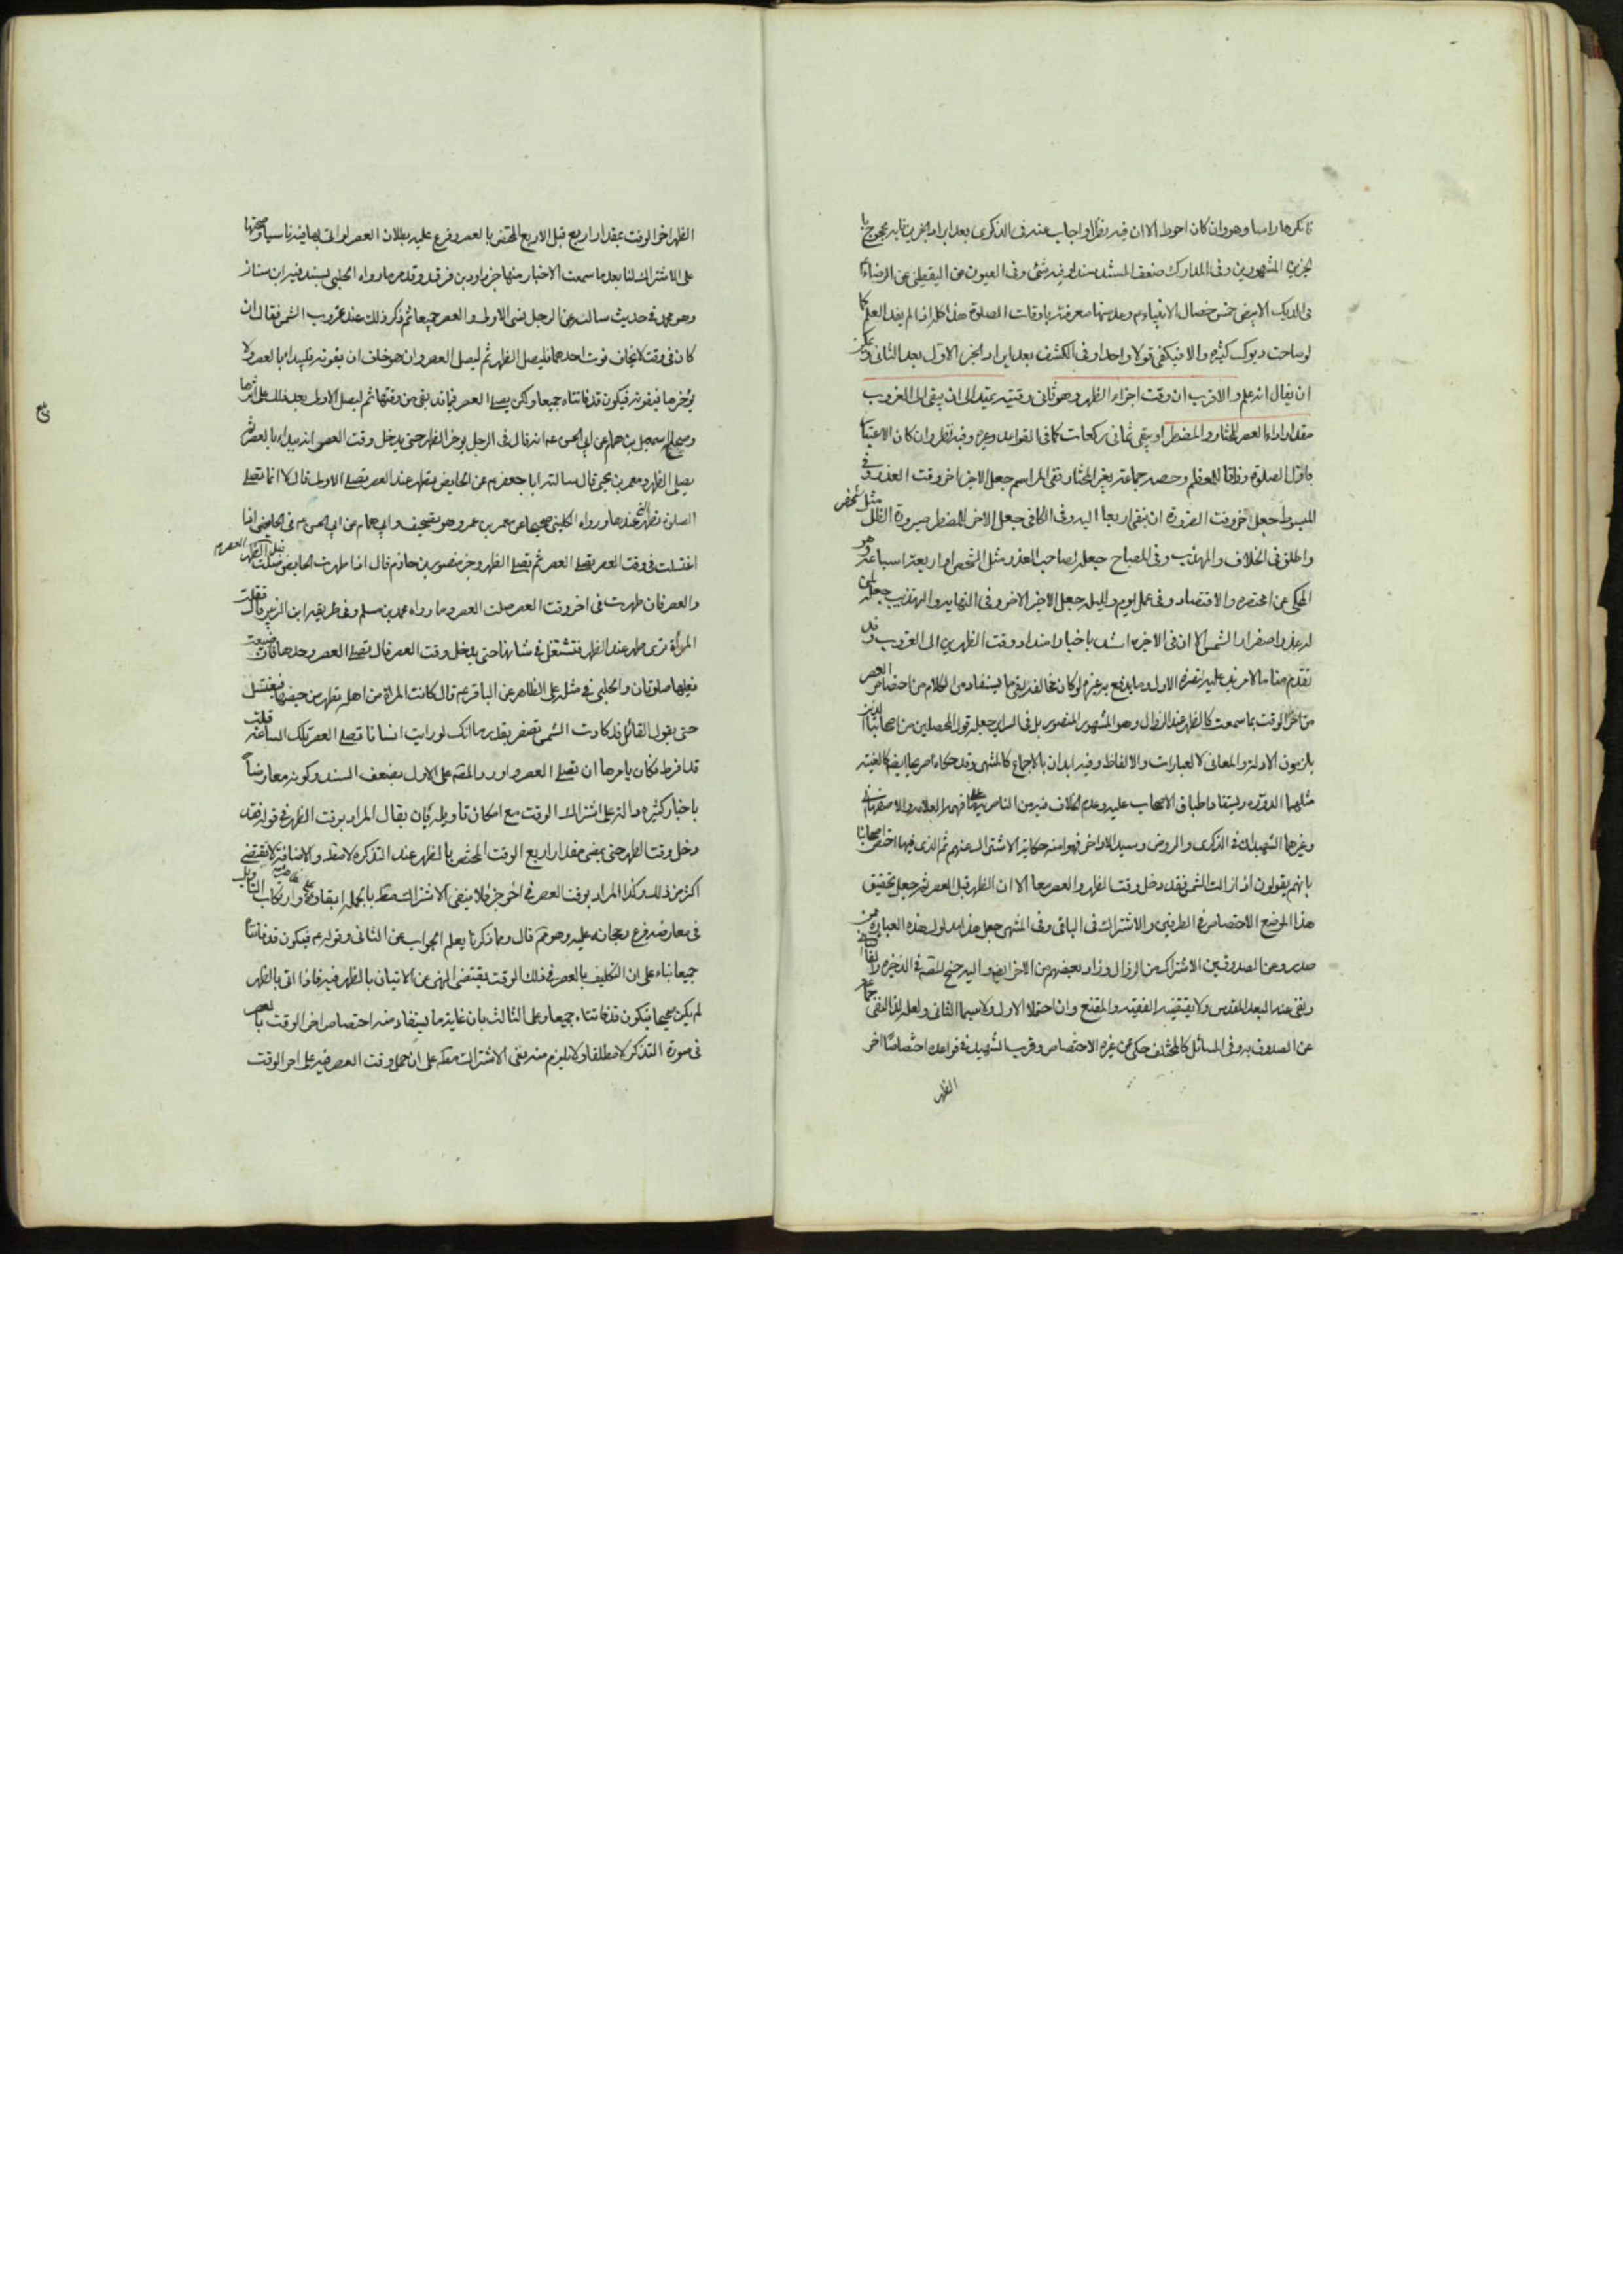 تانكرها راسا وهو وان كان احوط الا ان فيه نظرا واجاب عنه فى الذكرى بعد ايراد الخبرين بانه محجوج با
لخبرين المشهورين وفى المدارك ضعف المستند سند او فيه شئ وفى العيون عن اليقطينى عن الرضا ء
فى الديك الابيض خمس خصال الانبياء ء وعد منها معرفته باوقات الصلوة هذا كله اذا لم يفد العلم كا
لو صاحت ديوك كثيرة والا فيكفى قولا واحدا وفى الكشف بعد ايراد الخبر الاول بعد الثانى ويمكن
ان يقال انه علم والاقرب ان وقت اجزاء الظهر وهو ثانى وقتيه يمتد الى ان يبقى الى الغروب
مقدار اداء العصر للمختار والمضطر او يبقى ثمانى ركعات كما فى القواعد وغيره وفيه نظر وان كان الاعتبا
باول الصلوة وفاقا للمعظم وحصر جماعة بغير المختار ففى المراسم جعل الاجزا اخر وقت العذر وفى
المبسوط جعل اخر وقت الضرورة ان يبقى اربعا اليه وفى الكافى جعل الاخر للمضطر صيرورة الظل مثل شخص
واطلق فى الخلاف والمهذب وفى المصباح جعله لصاحب العذر مثل الشخص او اربعة اسباعه وهو
المحكى عن مختصره والاقتصاد وفى عمل يوم وليلة جعل الاجزا الاخر وفى النهاية والتهذيب جعله لمن
له عذر اصفرار الشمس الا ان فى الاخيرة استدل باخبار امتداد وقت الظهرين الى الغروب وقد
تقدم منا ما لا مزيد عليه لنصرة الاول وما يدفع به غيره لو كان مخالفه بقى ما يستفاد من الكلام من اختصاص العصر
من اخر الوقت بما سمعت كالظهر عند الزوال وهو المشهور المنصور بل فى السرائر جعله قول المحصلين من اصحابنا الذين
يلزمون الادلة والمعانى لا العبارات والالفاظ وفيه ايذان بالاجماع كالمنتهى وقد حكاه صريحا ايضا كالغنية
مثلهما الدروة ويستفاد اطباق الاصحاب عليه وعدم الخلاف فيه من الناصرية على ما فهمه العلامة والاصفهانى
وغيرهما الشهيدان فى الذكرى والروض وسيد الاواخر فهوا منه حكاية الاشتراك عنهم ثم الذى فيها اختص اصحابنا
بانهم يقولون اذا زالت الشمس فقد دخل وقت الظهر والعصر معا الا ان الظهر قبل العصر ثم جعل تحقيق
هذا الموضع الاختصاص فى الطرفين والاشتراك فى الباقى وفى المنتهى جعل هذا مدلول هذه العبارة ممن
صدر وعن الصدوقين الاشتراك من الزوال وزاد بعضهم من الاخر ايضا واليه جنح المقدس فى الذخيرة
ونفى عنه البعد المقدس ولا يقتضيه الفقيه والمقنع وان احتملا الاول ولا سيما الثانى ولعله لذا نفى جماعة
عن الصدوق به وفى المسائل كالمختلف حكى عن غيره الاختصاص وقريب الشهيد فى قواعده اختصاصا اخر
الظهر
الظهر اخر الوقت بمقدار اربع قبل الاربع المختص بالعصر وفرع عليه بطلان العصر لو اتى بها فيه ناسيا وصحتها
على الاشتراك لنا بعد ما سمعت الاخبار منها خبر داود بن فرقد وقد مر وما رواه الحلبى بسند فيه ابن سنان
وهو محمد فى حديث سالته عن الرجل نسى الاولى والعصر جميعا ثم ذكر ذلك عند غروب الشمس فقال ان
كان فى وقت لا يخاف فوت احدهما فليصل الظهر ثم ليصل العصر وان هو خاف ان يفوته فليبدا بالعصر ولا
يؤخرها فيفوته فيكون قد فاتتاه جميعا ولكن يصلى العصر فيما قد بقى من وقتها ثم ليصل الاولى بعد ذلك على اثرها
وصحيح اسمعيل بن همام عن ابى الحسن ع انه قال فى الرجل يؤخر الظهر حتى يدخل وقت العصر انه يبدا بالعصر ثم
يصلى الظهر ومعمر بن يحيى قال سالت ابا جعفر ع عن الحايض تطهر عند العصر تصلى الاولى قال لا انما تصلى
الصلوة تطهر عندها ورواه الكلينى صحيحا عن معمر بن عمر وهو تصحيف وابى همام عن ابى الحسن ع فى الحايض اذا
اغتسلت فى وقت العصر تصلى العصر ثم تصلى الظهر وخبر منصور بن حازم قال اذا طهرت الحايض قبل العصر صلت الظهر
والعصر فان طهرت فى اخر وقت العصر صلت العصر وما رواه محمد بن مسلم وفى طريقه ابن الزبير قال فقلت
المرأة ترى الطهر عند الظهر فتشتغل فى شانها حتى يدخل وقت العصر قال تصلى العصر وحدها فان ضيعت
فعليها صلوتان والحلبى فى مثله على الظاهر عن الباقر ع قال كانت المراة من اهلى تطهر من حيضها فتغتسل
حتى يقول القائل قد كادت الشمس تصفر بقدر ما انك لو رايت انسانا يصلى العصر تلك الساعة قلت
قد افرط فكان يامرها ان تصلى العصر واورد المقدس على الاول بضعف السند وكونه معارضا
باخبار كثيرة دالة على اشتراك الوقت مع امكان تاويله بان يقال المراد بوقت الظهر فى قوله فقد
دخل وقت الظهر حتى يمضى مقدار اربع الوقت المختص بالظهر عند التذكر لا مطلقا والاضافة لا تقتضى
اكثر من ذلك وكذا المراد بوقت العصر فى اخر جزء فلا ينفى الاشتراك مطلقا بالجملة ابقاؤه على ظاهره وارتكاب التاويل
فى معارضه فرع رجحانه عليه وهو ثم قال ومما ذكرنا يعلم الجواب عن الثانى وقوله ع فيكون قد فاتتا
جميعا بناء على ان التكليف بالعصر فى ذلك الوقت يقتضى النهى عن الاتيان بالظهر فيه فاذا اتى بالظهر
لم يكن صحيحا فيكون قد فاتتاه جميعا وعلى الثالث بان غاية ما يستفاد منه اختصاص اخر الوقت بالعصر
فى صورة التذكر لا مطلقا ولا يلزم منه نفى الاشتراك مطلقا على ان حمل وقت العصر فيه على اخر الوقت